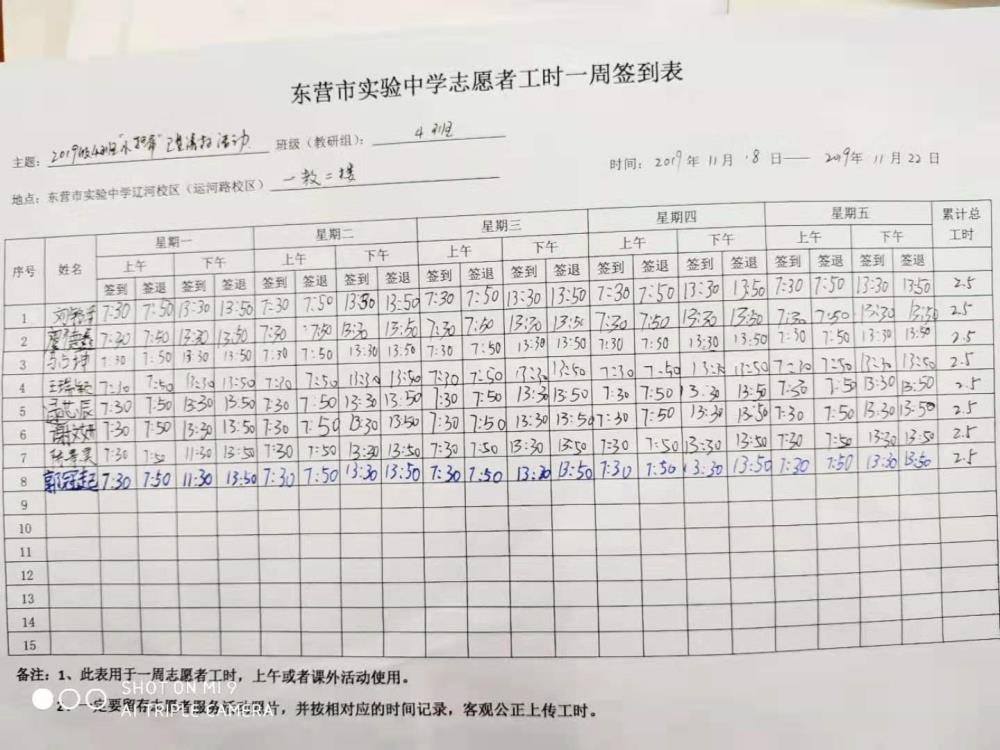 东营市实验中学志愿者工时一周签到表
主题：2019级4班 活动 班级（教研组）： 4班
时间：2019年11月18日——2019年11月22日
地点：东营市实验中学辽河校区（运河路校区） 一教二楼
序号 姓名 星期一 星期二 星期三 星期四 星期五 累计总工时
上午 下午 上午 下午 上午 下午 上午 下午 上午 下午
签到 签退 签到 签退 签到 签退 签到 签退 签到 签退 签到 签退 签到 签退 签到 签退 签到 签退 签到 签退
1 7:30 7:50 13:30 13:50 7:30 7:50 13:30 13:50 7:30 7:50 13:30 13:50 7:30 7:50 13:30 13:50 7:30 7:50 13:30 13:50 2.5
2 7:30 7:50 13:30 13:50 7:30 7:50 13:30 13:50 7:30 7:50 13:30 13:50 7:30 7:50 13:30 13:50 7:30 7:50 13:30 13:50 2.5
3 马占坤 7:30 7:50 13:30 13:50 7:30 7:50 13:30 13:50 7:30 7:50 13:30 13:50 7:30 7:50 13:30 13:50 7:30 7:50 13:30 13:50 2.5
4 7:30 7:50 13:30 13:50 7:30 7:50 13:30 13:50 7:30 7:50 13:30 13:50 7:30 7:50 13:30 13:50 7:30 7:50 13:30 13:50 2.5
5 7:30 7:50 13:30 13:50 7:30 7:50 13:30 13:50 7:30 7:50 13:30 13:50 7:30 7:50 13:30 13:50 7:30 7:50 13:30 13:50 2.5
6 7:30 7:50 13:30 13:50 7:30 7:50 13:30 13:50 7:30 7:50 13:30 13:50 7:30 7:50 13:30 13:50 7:30 7:50 13:30 13:50 2.5
7 7:30 7:50 11:30 13:50 7:30 7:50 13:30 13:50 7:30 7:50 13:30 13:50 7:30 7:50 13:30 13:50 7:30 7:50 13:30 13:50 2.5
8 郭冠起 7:30 7:50 11:30 13:50 7:30 7:50 13:30 13:50 7:30 7:50 13:30 13:50 7:30 7:50 13:30 13:50 7:30 7:50 13:30 13:50 2.5
9
10
11
12
13
14
15
备注：1、此表用于一周志愿者工时，上午或者课外活动使用。
2、一定要留存志愿者服务活动照片，并按相对应的时间记录，客观公正上传工时。
SHOT ON MI 9
AI TRIPLE CAMERA